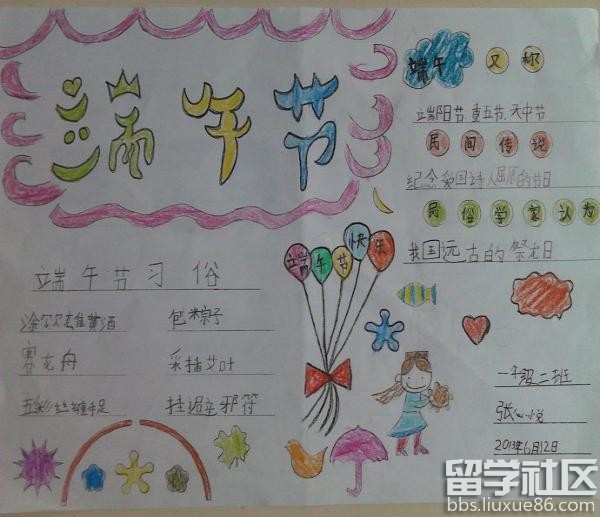 端午节
端午 又称
端阳节、重五节、天中节
民间传说
纪念爱国诗人屈原的节日
民俗学家认为
我国远古的祭龙日
端午节快乐
端午节习俗
包粽子
赛龙舟 采插艾叶
五彩丝缠手足 挂避邪符
一年级二班
2013年6月12日
留学社区
bbs.liuxue86.com